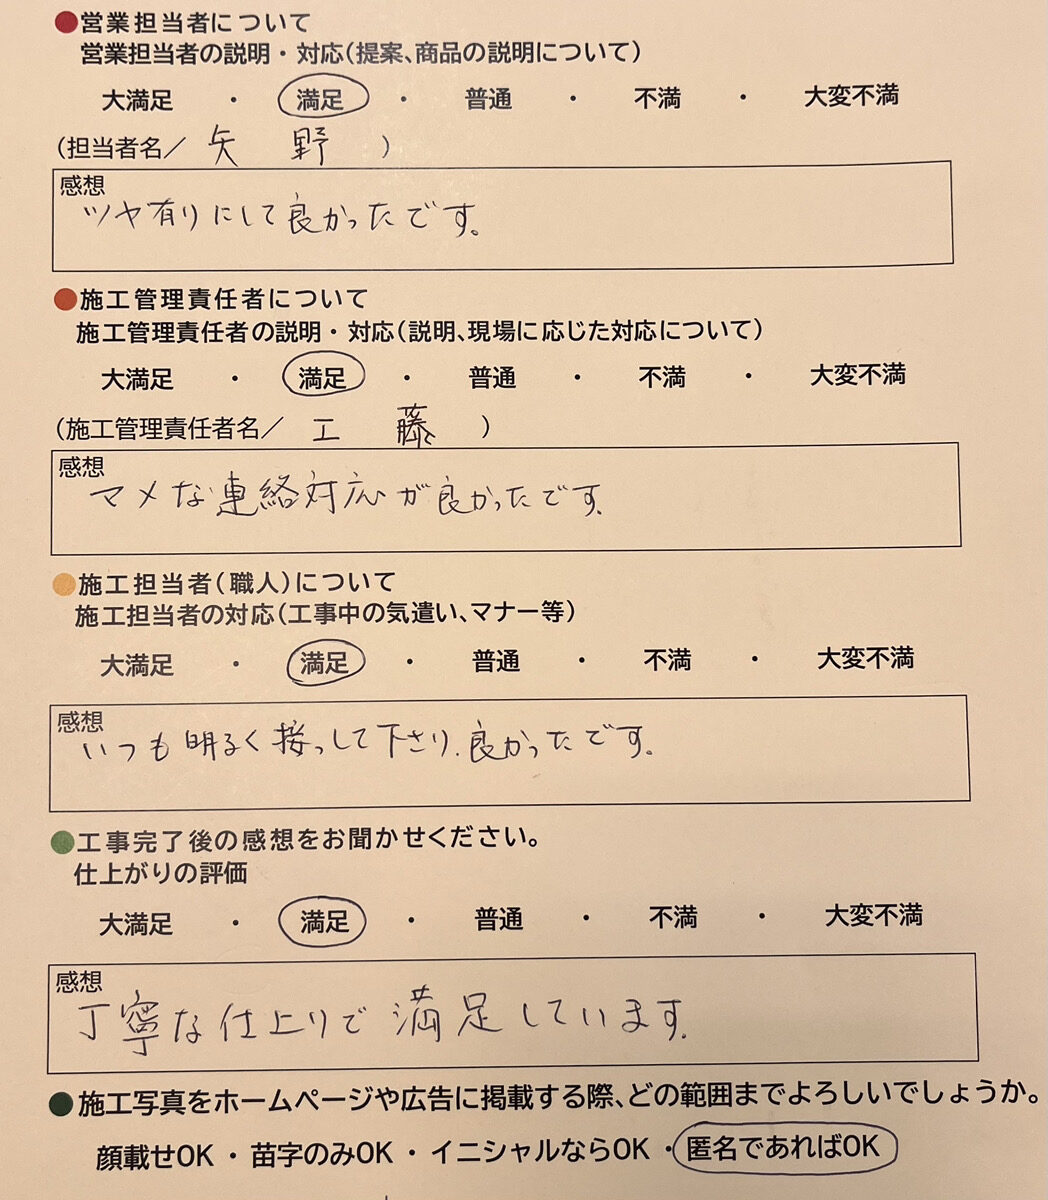 ●営業担当者について
営業担当者の説明・対応(提案、商品の説明について)
大満足 ・ 満足 ・ 普通 ・ 不満 ・ 大変不満
(担当者名／ 矢野 )
感想
ツヤ有りにして良かったです。
●施工管理責任者について
施工管理責任者の説明・対応(説明、現場に応じた対応について)
大満足 ・ 満足 ・ 普通 ・ 不満 ・ 大変不満
(施工管理責任者名／ 工藤 )
感想
マメな連絡対応が良かったです.
●施工担当者(職人)について
施工担当者の対応(工事中の気遣い、マナー等)
大満足 ・ 満足 ・ 普通 ・ 不満 ・ 大変不満
感想
いつも明るく接っして下さり.良かったです.
●工事完了後の感想をお聞かせください。
仕上がりの評価
大満足 ・ 満足 ・ 普通 ・ 不満 ・ 大変不満
感想
丁寧な仕上りで満足しています.
●施工写真をホームページや広告に掲載する際、どの範囲までよろしいでしょうか。
顔載せOK ・ 苗字のみOK ・ イニシャルならOK ・ 匿名であればOK